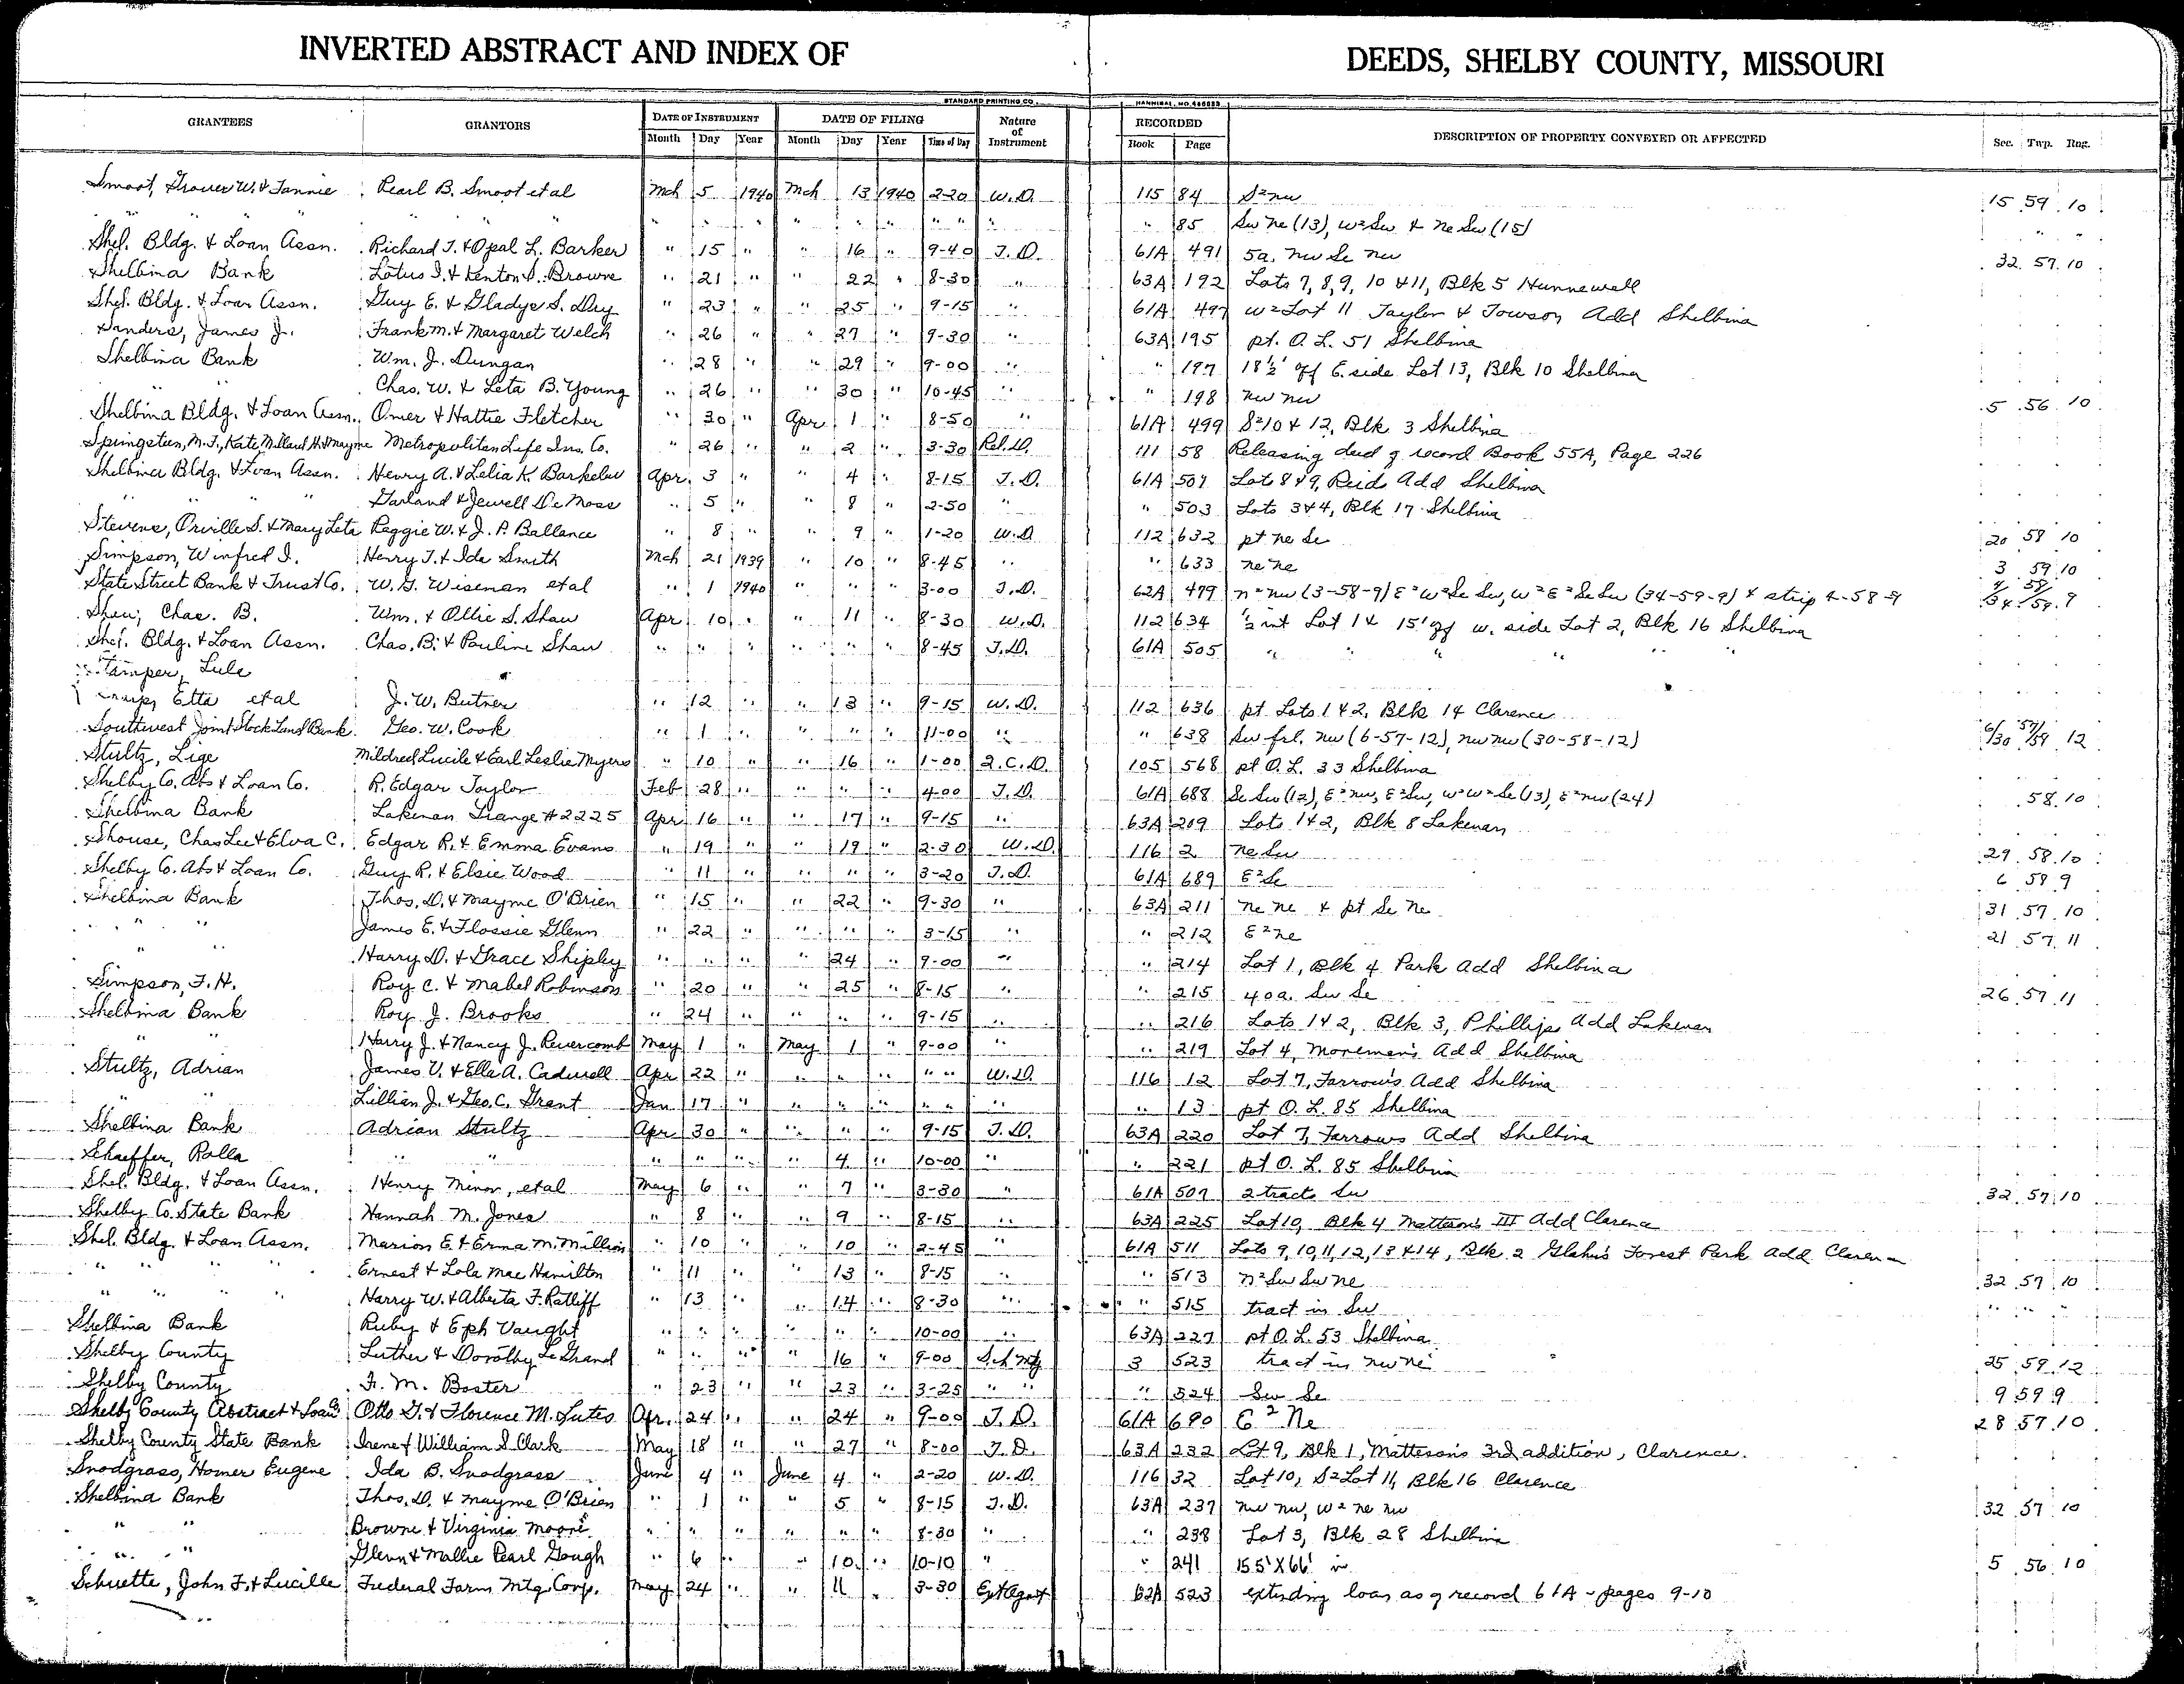 INVERTED ABSTRACT AND INDEX OF DEEDS, SHELBY COUNTY, MISSOURI
STANDARD PRINTING CO. HANNIBAL, NO.
GRANTEES GRANTORS DATE OF INSTRUMENT DATE OF FILING Nature of Instrument RECORDED DESCRIPTION OF PROPERTY CONVEYED OR AFFECTED Sec. Twp. Rng.
Month Day Year Month Day Year Time of Day Book Page
Smoot, Grover W. & Fannie Pearl B. Smoot et al Mch 5 1940 Mch 13 1940 2-20 W.D. 115 84 S² nw 15 59 10
" " " " " " " " " " " " " 85 Sw ne (13), w² Sw & ne Sw (15) " " "
Shel. Bldg. & Loan Assn. Richard T. & Opal L. Barker " 15 " " 16 " 9-40 T.D. 61A 491 5a. nw Se nw 32 57 10
Shelbina Bank Lotus I. & Kenton S. Browne " 21 " " 22 " 8-30 " 63A 192 Lots 7, 8, 9, 10 & 11, Blk 5 Hunnewell
Shel. Bldg. & Loan Assn. Guy E. & Gladys S. Day " 23 " " 25 " 9-15 " 61A 497 w² Lot 11 Taylor & Towson Add Shelbina
Sanders, James J. Frank M. & Margaret Welch " 26 " " 27 " 9-30 " 63A 195 pt. O. L. 51 Shelbina
Shelbina Bank Wm. J. Dungan " 28 " " 29 " 9-00 " " 197 18½' off E. side Lot 13, Blk 10 Shelbina
Chas. W. & Leta B. Young " 26 " " 30 " 10-45 " " 198 nw nw 5 56 10
Shelbina Bldg. & Loan Assn. Omer & Hattie Fletcher " 30 " Apr 1 " 8-50 " 61A 499 S² 10 & 12, Blk 3 Shelbina
Springsteen, M. F., Kate, Millard H. & Mayme Metropolitan Life Ins. Co. " 26 " " 2 " 3-30 Rel. D. 111 58 Releasing deed of record Book 55A, Page 226
Shelbina Bldg. & Loan Assn. Henry A. & Lelia K. Barkelew Apr. 3 " " 4 " 8-15 T.D. 61A 501 Lots 8 & 9, Reids Add Shelbina
" " " Garland & Jewell DeMoss " 5 " " 8 " 2-50 " " 503 Lots 3 & 4, Blk 17 Shelbina
Stevens, Orville S. & Mary Leta Reggie W. & J. P. Ballance " 8 " " 9 " 1-20 W.D. 112 632 pt ne Se 20 58 10
Simpson, Winfred I. Henry T. & Ida Smith Mch 21 1939 " 10 " 8-45 " " 633 ne ne 3 59 10
State Street Bank & Trust Co. W. G. Wiseman et al " 1 1940 " " " 3-00 T.D. 62A 479 n² nw (3-58-9) E² w² Se Sw, w² E² Se Sw (34-59-9) & strip 4-58-9 4/34 58/59 9
Shaw, Chas. B. Wm. & Ollie S. Shaw Apr 10 " " 11 " 8-30 W.D. 112 634 ½ int Lot 1 & 15' off w. side Lot 2, Blk 16 Shelbina
Shel. Bldg. & Loan Assn. Chas. B. & Pauline Shaw " " " " " " 8-45 T.D. 61A 505 " " " " " "
Stamper, Lula
Etta et al J. W. Butner " 12 " " 13 " 9-15 W.D. 112 636 pt Lots 1 & 2, Blk 14 Clarence
Southwest Joint Stock Land Bank Geo. W. Cook " 1 " " " " 11-00 " " 638 Sw frl. nw (6-57-12), nw nw (30-58-12) 6/30 57/59 12
Stultz, Lige Mildred Lucile & Earl Leslie Myers " 10 " " 16 " 1-00 Q.C.D. 105 568 pt O. L. 33 Shelbina
Shelby Co. Abs & Loan Co. R. Edgar Taylor Feb 28 " " " " 4-00 T.D. 61A 688 Se Sw (12), E² nw, E² Sw, w² w² Se (13), E² nw (24) 58 10
Shelbina Bank Lakenan Grange #2225 Apr 16 " " 17 " 9-15 " 63A 209 Lots 1 & 2, Blk 8 Lakenan
Shouse, Chas Lee & Elva C. Edgar R. & Emma Evans " 19 " " 19 " 2-30 W.D. 116 2 ne Sw 29 58 10
Shelby Co. Abs & Loan Co. Guy R. & Elsie Wood " 11 " " " " 3-20 T.D. 61A 689 E² Se 6 58 9
Shelbina Bank Thos. D. & Mayme O'Brien " 15 " " 22 " 9-30 " 63A 211 ne ne & pt Se ne 31 57 10
" " James E. & Flossie Glenn " 22 " " " " 3-15 " " 212 E² ne 21 57 11
" " Harry D. & Grace Shipley " " " " 24 " 9-00 " " 214 Lot 1, Blk 4 Park Add Shelbina
Simpson, F. H. Roy C. & Mabel Robinson " 20 " " 25 " 8-15 " " 215 40a. Sw Se 26 57 11
Shelbina Bank Roy J. Brooks " 24 " " " " 9-15 " " 216 Lots 1 & 2, Blk 3, Phillips Add Lakenan
" " Harry J. & Nancy J. Revercomb May 1 " May 1 " 9-00 " " 219 Lot 4, Moreman's Add Shelbina
Stultz, Adrian James V. & Ella A. Cadwell Apr 22 " " " " " " W.D. 116 12 Lot 7, Farrow's Add Shelbina
" Lillian J. & Geo. C. Grant Jan 17 " " " " " " " " 13 pt O. L. 85 Shelbina
Shelbina Bank Adrian Stultz Apr 30 " " " " 9-15 T.D. 63A 220 Lot 7, Farrows Add Shelbina
Schaeffer, Rolla " " " " " " 4 " 10-00 " " 221 pt O. L. 85 Shelbina
Shel. Bldg. & Loan Assn. Henry Minor, et al May 6 " " 7 " 3-30 " 61A 507 2 tracts Sw 32 57 10
Shelby Co. State Bank Hannah M. Jones " 8 " " 9 " 8-15 " 63A 225 Lot 10, Blk 4 Mattson's III Add Clarence
Shel. Bldg. & Loan Assn. Marion E. & Erma M. Million " 10 " " 10 " 2-45 " 61A 511 Lots 9, 10, 11, 12, 13 & 14, Blk 2 Glahn's Forest Park Add Claren
" " " " Ernest & Lola Mae Hamilton " 11 " " 13 " 8-15 " " 513 n² Sw Sw ne 32 57 10
" " " " Harry W. & Alberta F. Ratliff " 13 " " 14 " 8-30 " " 515 tract in Sw " " "
Shelbina Bank Ruby & Eph Vaught " " " " " " 10-00 " 63A 227 pt O. L. 53 Shelbina
Shelby County Luther & Dorothy LeGrand " " " " 16 " 9-00 Sch Mtg 3 523 tract in nw ne 25 59 12
Shelby County F. M. Boster " 23 " " 23 " 3-25 " " " 524 Sw Se 9 59 9
Shelby County Abstract & Loan Co. Otto G. & Florence M. Lutes Apr. 24 " " 24 " 9-00 T.D. 61A 690 E² Ne 28 57 10
Shelby County State Bank Irene & William S. Clark May 18 " " 27 " 8-00 T.D. 63A 232 Lot 9, Blk 1, Matteson's 3rd addition, Clarence.
Snodgrass, Homer Eugene Ida B. Snodgrass June 4 " June 4 " 2-20 W.D. 116 32 Lot 10, S² Lot 11, Blk 16 Clarence
Shelbina Bank Thos. D. & Mayme O'Brien " 1 " " 5 " 8-15 T.D. 63A 237 nw nw, w² ne nw 32 57 10
" " Browne & Virginia Moore " " " " " " 8-30 " " 238 Lot 3, Blk 28 Shelbina
" " Glenn & Mollie Pearl Gough " 6 " " 10 " 10-10 " " 241 155' X 66' in 5 56 10
Schuette, John F. & Lucille Federal Farm Mtg. Corp. May 24 " " 11 " 3-30 Ext Agmt 62A 523 extending loan as of record 61A - pages 9-10